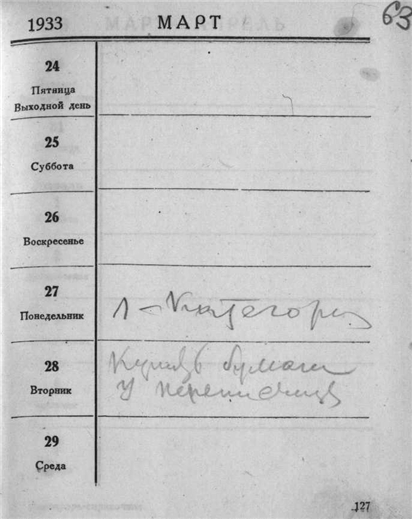 1933 МАРТ 63
24
Пятница
Выходной день
25
Суббота
26
Воскресенье
27
Понедельник
1 – Категория
28
Вторник
Купить бумаги
у переписчицы
29
Среда
127